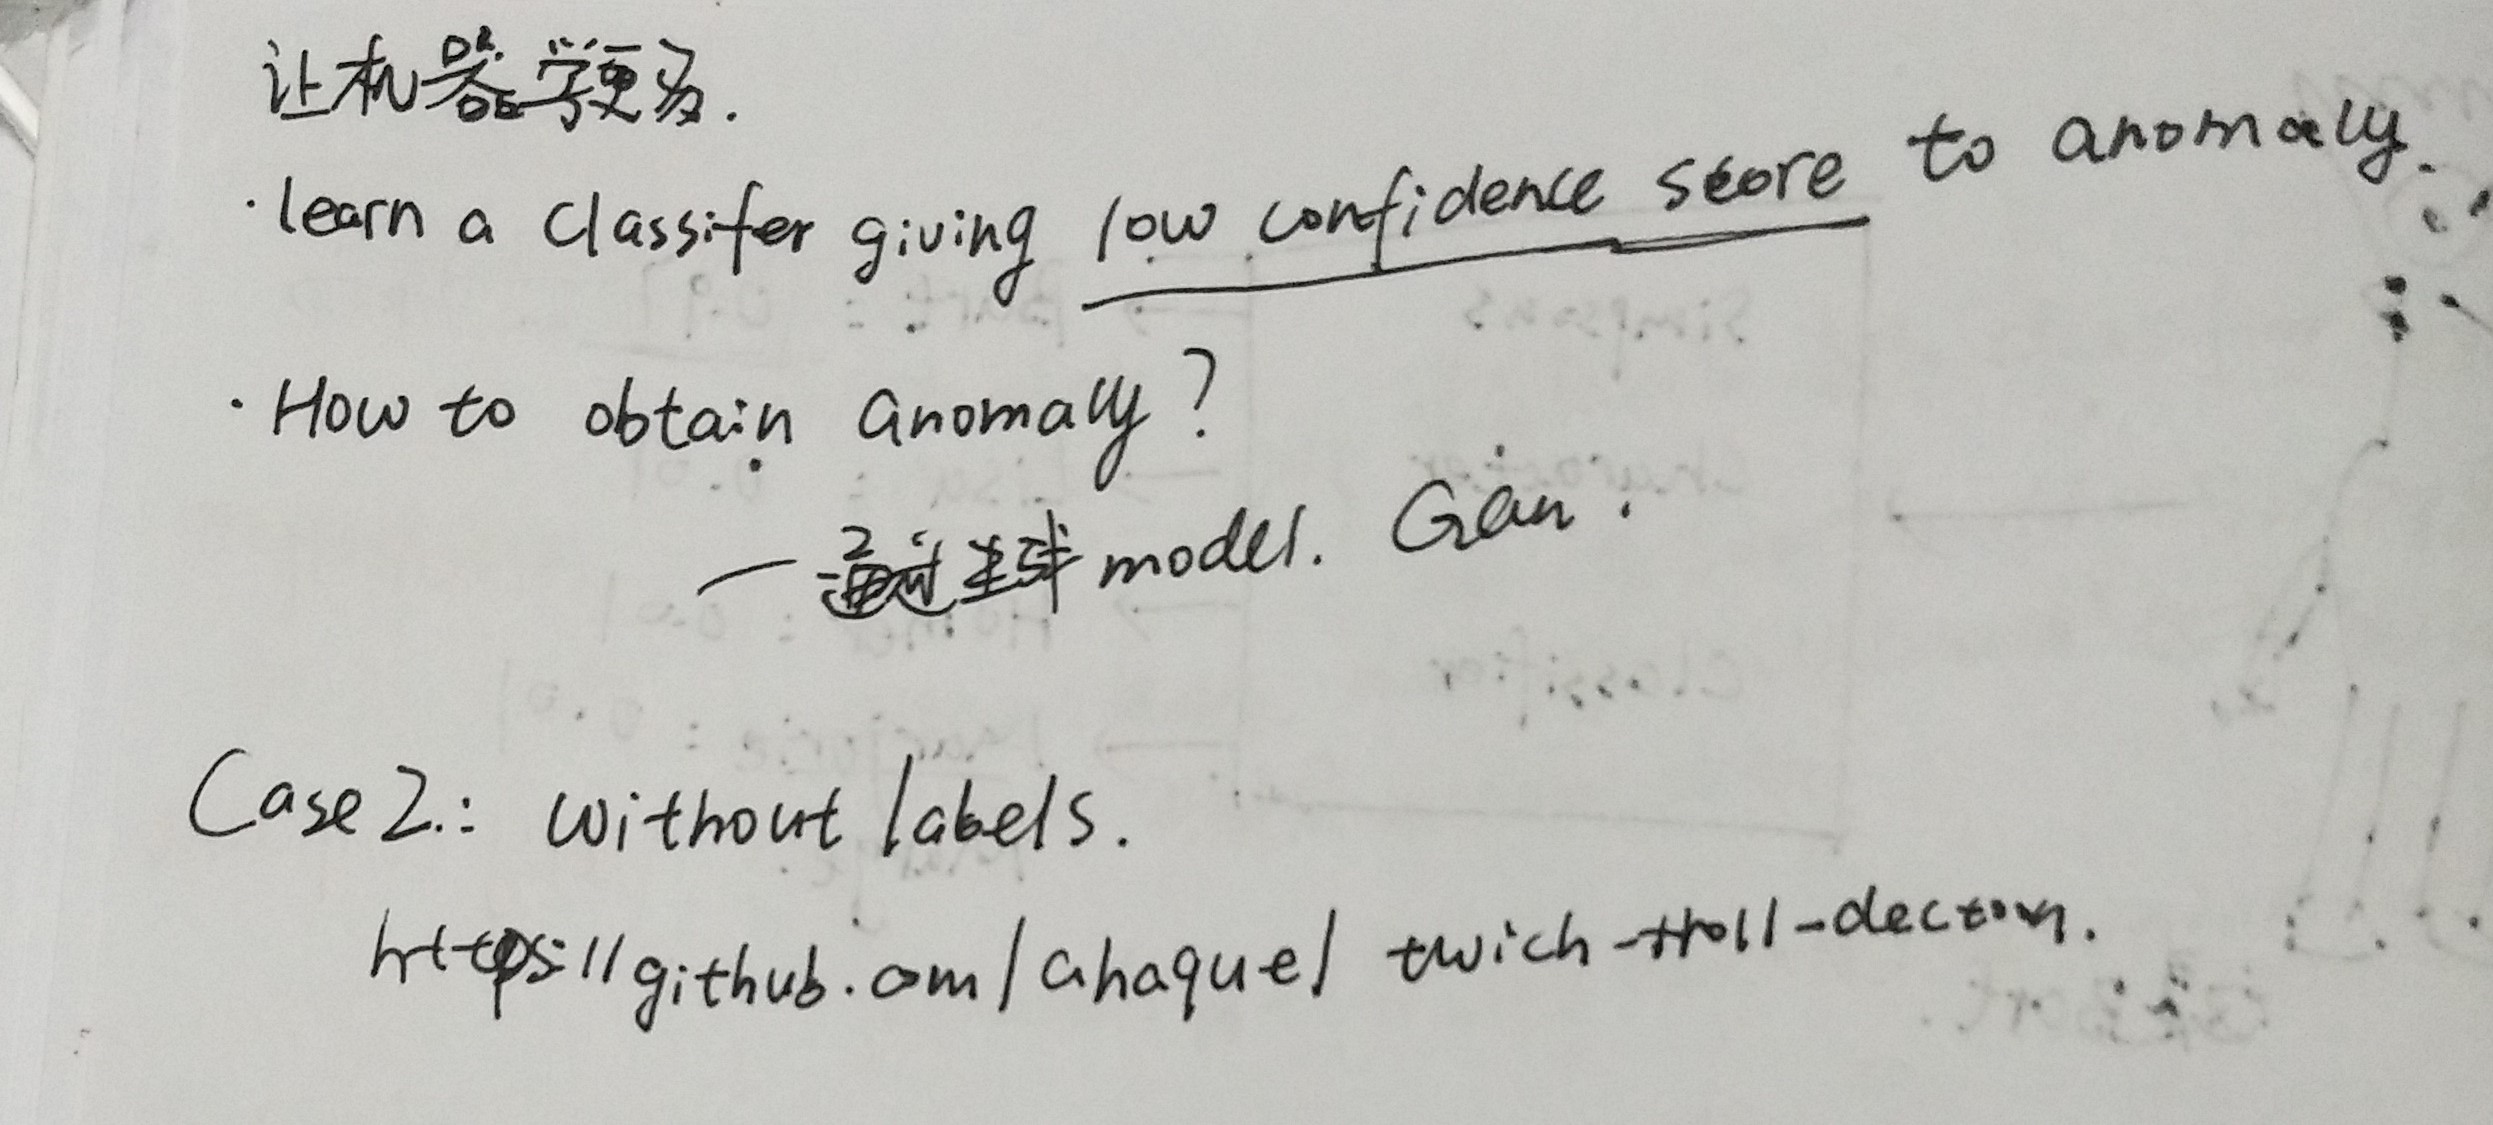 让机器学更多.
· learn a classifer giving low confidence score to anomaly.
· How to obtain anomaly?
— 通过生成 model. Gan.
Case 2.: without labels.
https://github.com/ahaque/twich-troll-dection.